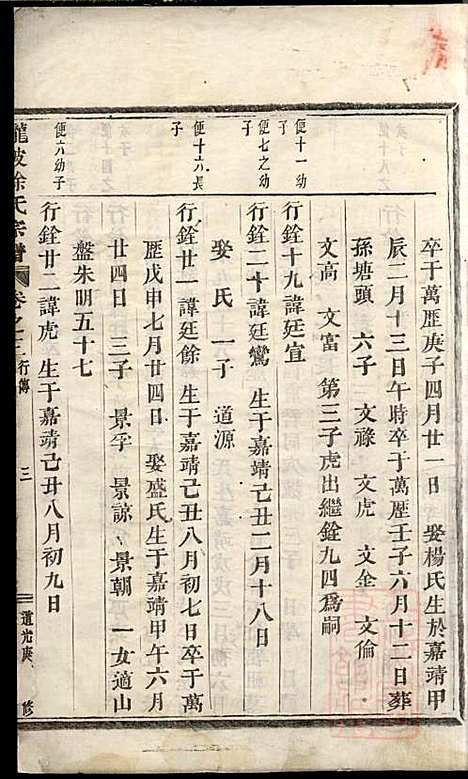 卒于萬歷庚子四月廿一日 娶楊氏生於嘉靖甲
辰二月十三日午時卒于萬歷壬子六月十二日葬
孫塘頭 六子 文祿 文虎 文金 文倫
文高 文富 第三子虎出繼銓九四為嗣
便十一幼子
行銓十九諱廷宜
便七之幼子
行銓二十諱廷鸞 生于嘉靖己丑二月十八日
娶 氏 一子 道源
便十六長子
行銓廿一諱廷餘 生于嘉靖己丑八月初七日卒于萬
歷戊申七月廿四日 娶盛氏生于嘉靖甲午六月
廿四日 三子 景孚 景諒 景朝 一女適山
盤朱明五十七
便六幼子
行銓廿二諱虎 生于嘉靖己丑八月初九日
龍坡徐氏宗譜 卷之二 行傳 三 道光庚 修